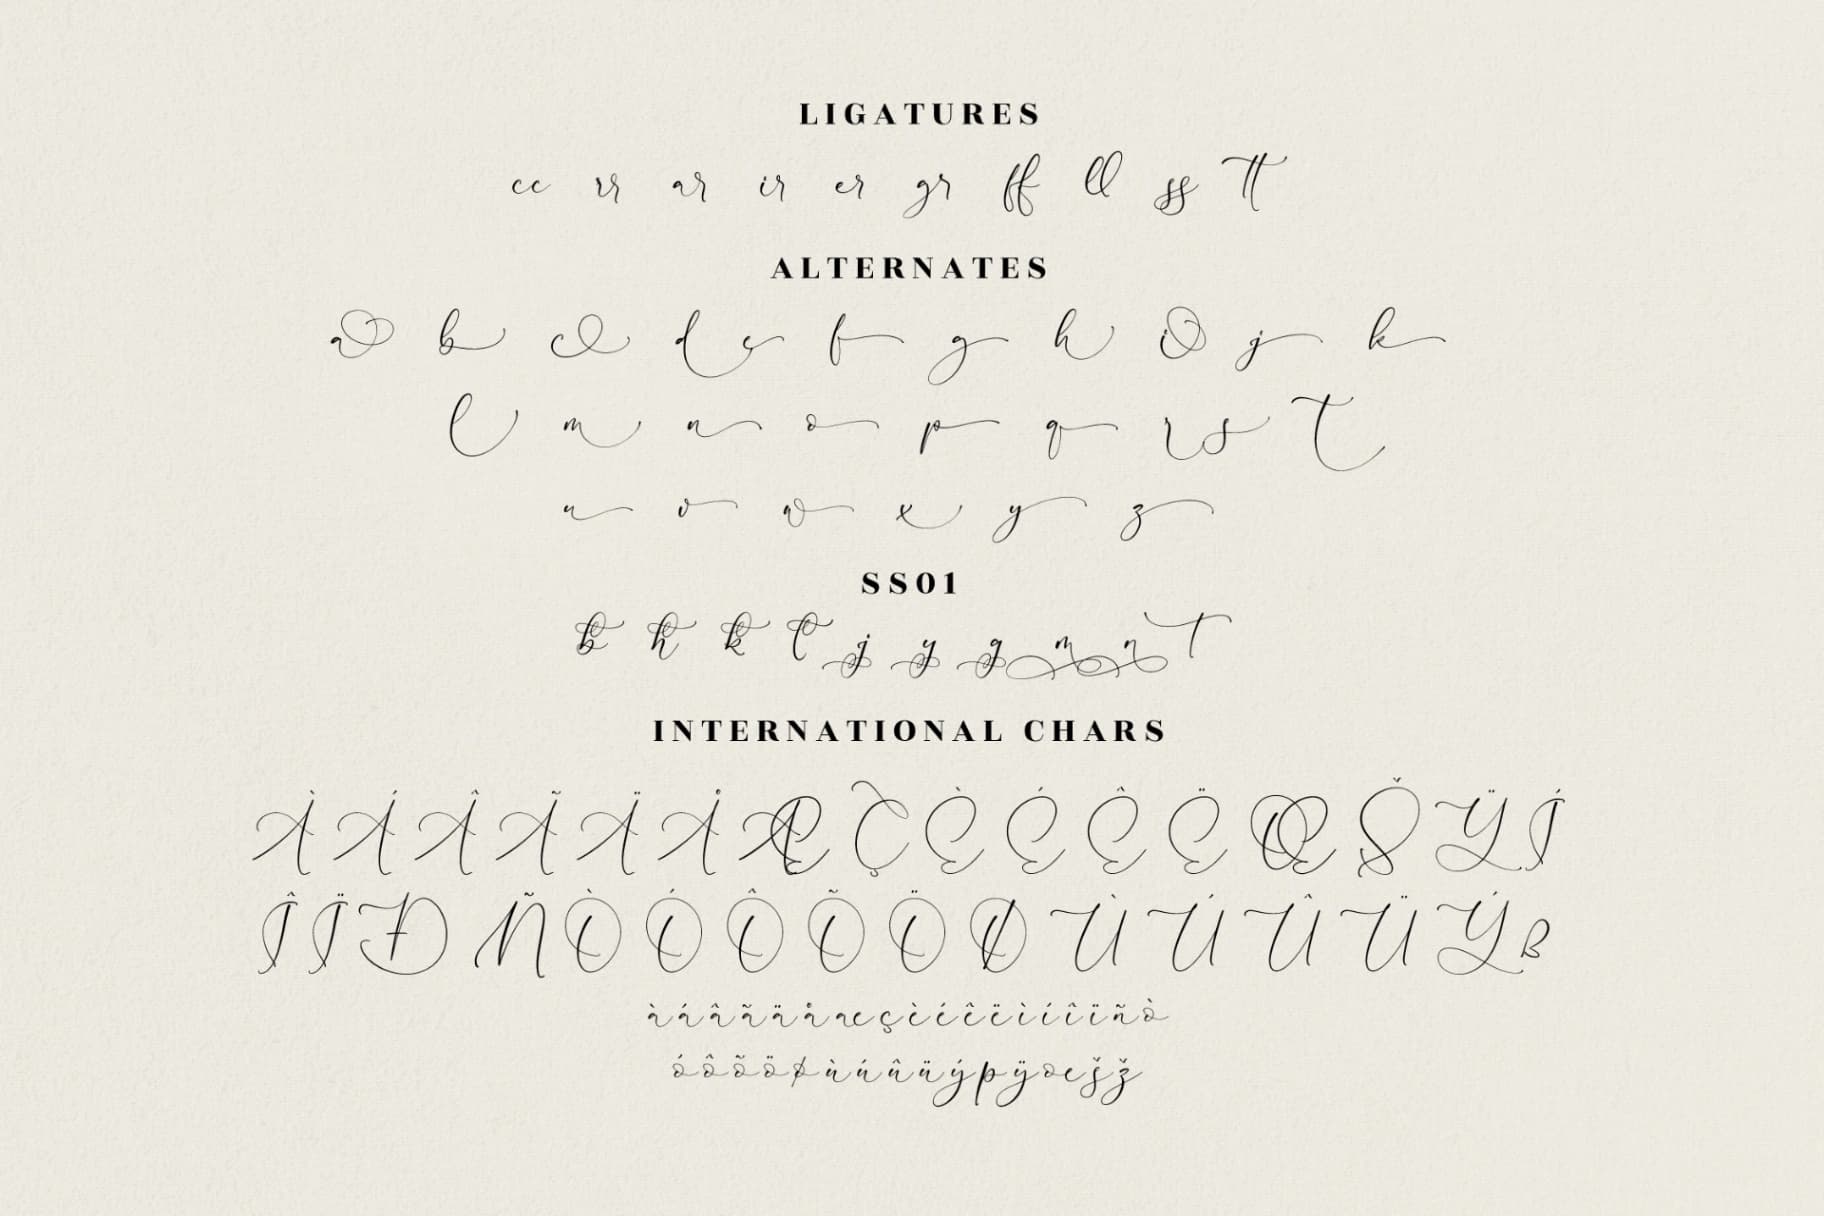 LIGATURES
cc rr ar ir er gr ff ll ss tt
ALTERNATES
a b c d e f g h i j k
l m n o p q r s t
u v w x y z
SS01
b h k l j y g m n t
INTERNATIONAL CHARS
À Á Â Ã Ä Å Æ Ç È É Ê Ë Œ Š Ÿ Í
Î Ï Ð Ñ Ò Ó Ô Õ Ö Ø Ù Ú Û Ü Ý ß
à á â ã ä å æ ç è é ê ë ì í î ï ñ ò
ó ô õ ö ø ù ú û ü ý þ ÿ œ š ž